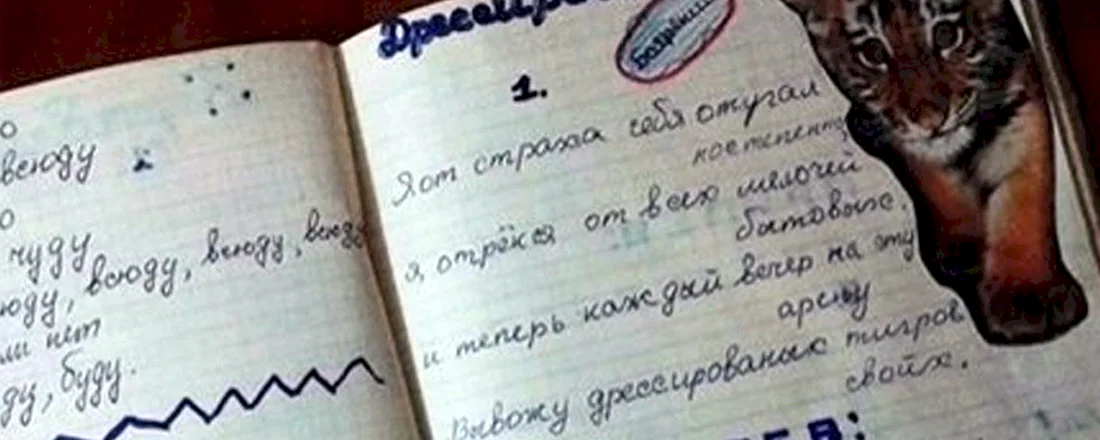 о
всюду
о
чуду
юду, всюду, всюду, всюду
ли нет
ду, буду.
Дрессиро
1.
Я от страха себя отугал
постепенно
я отрёкся от всех мелочей
бытовых.
и теперь каждый вечер на эту
арену
Вывожу дрессированых тигров
своих.